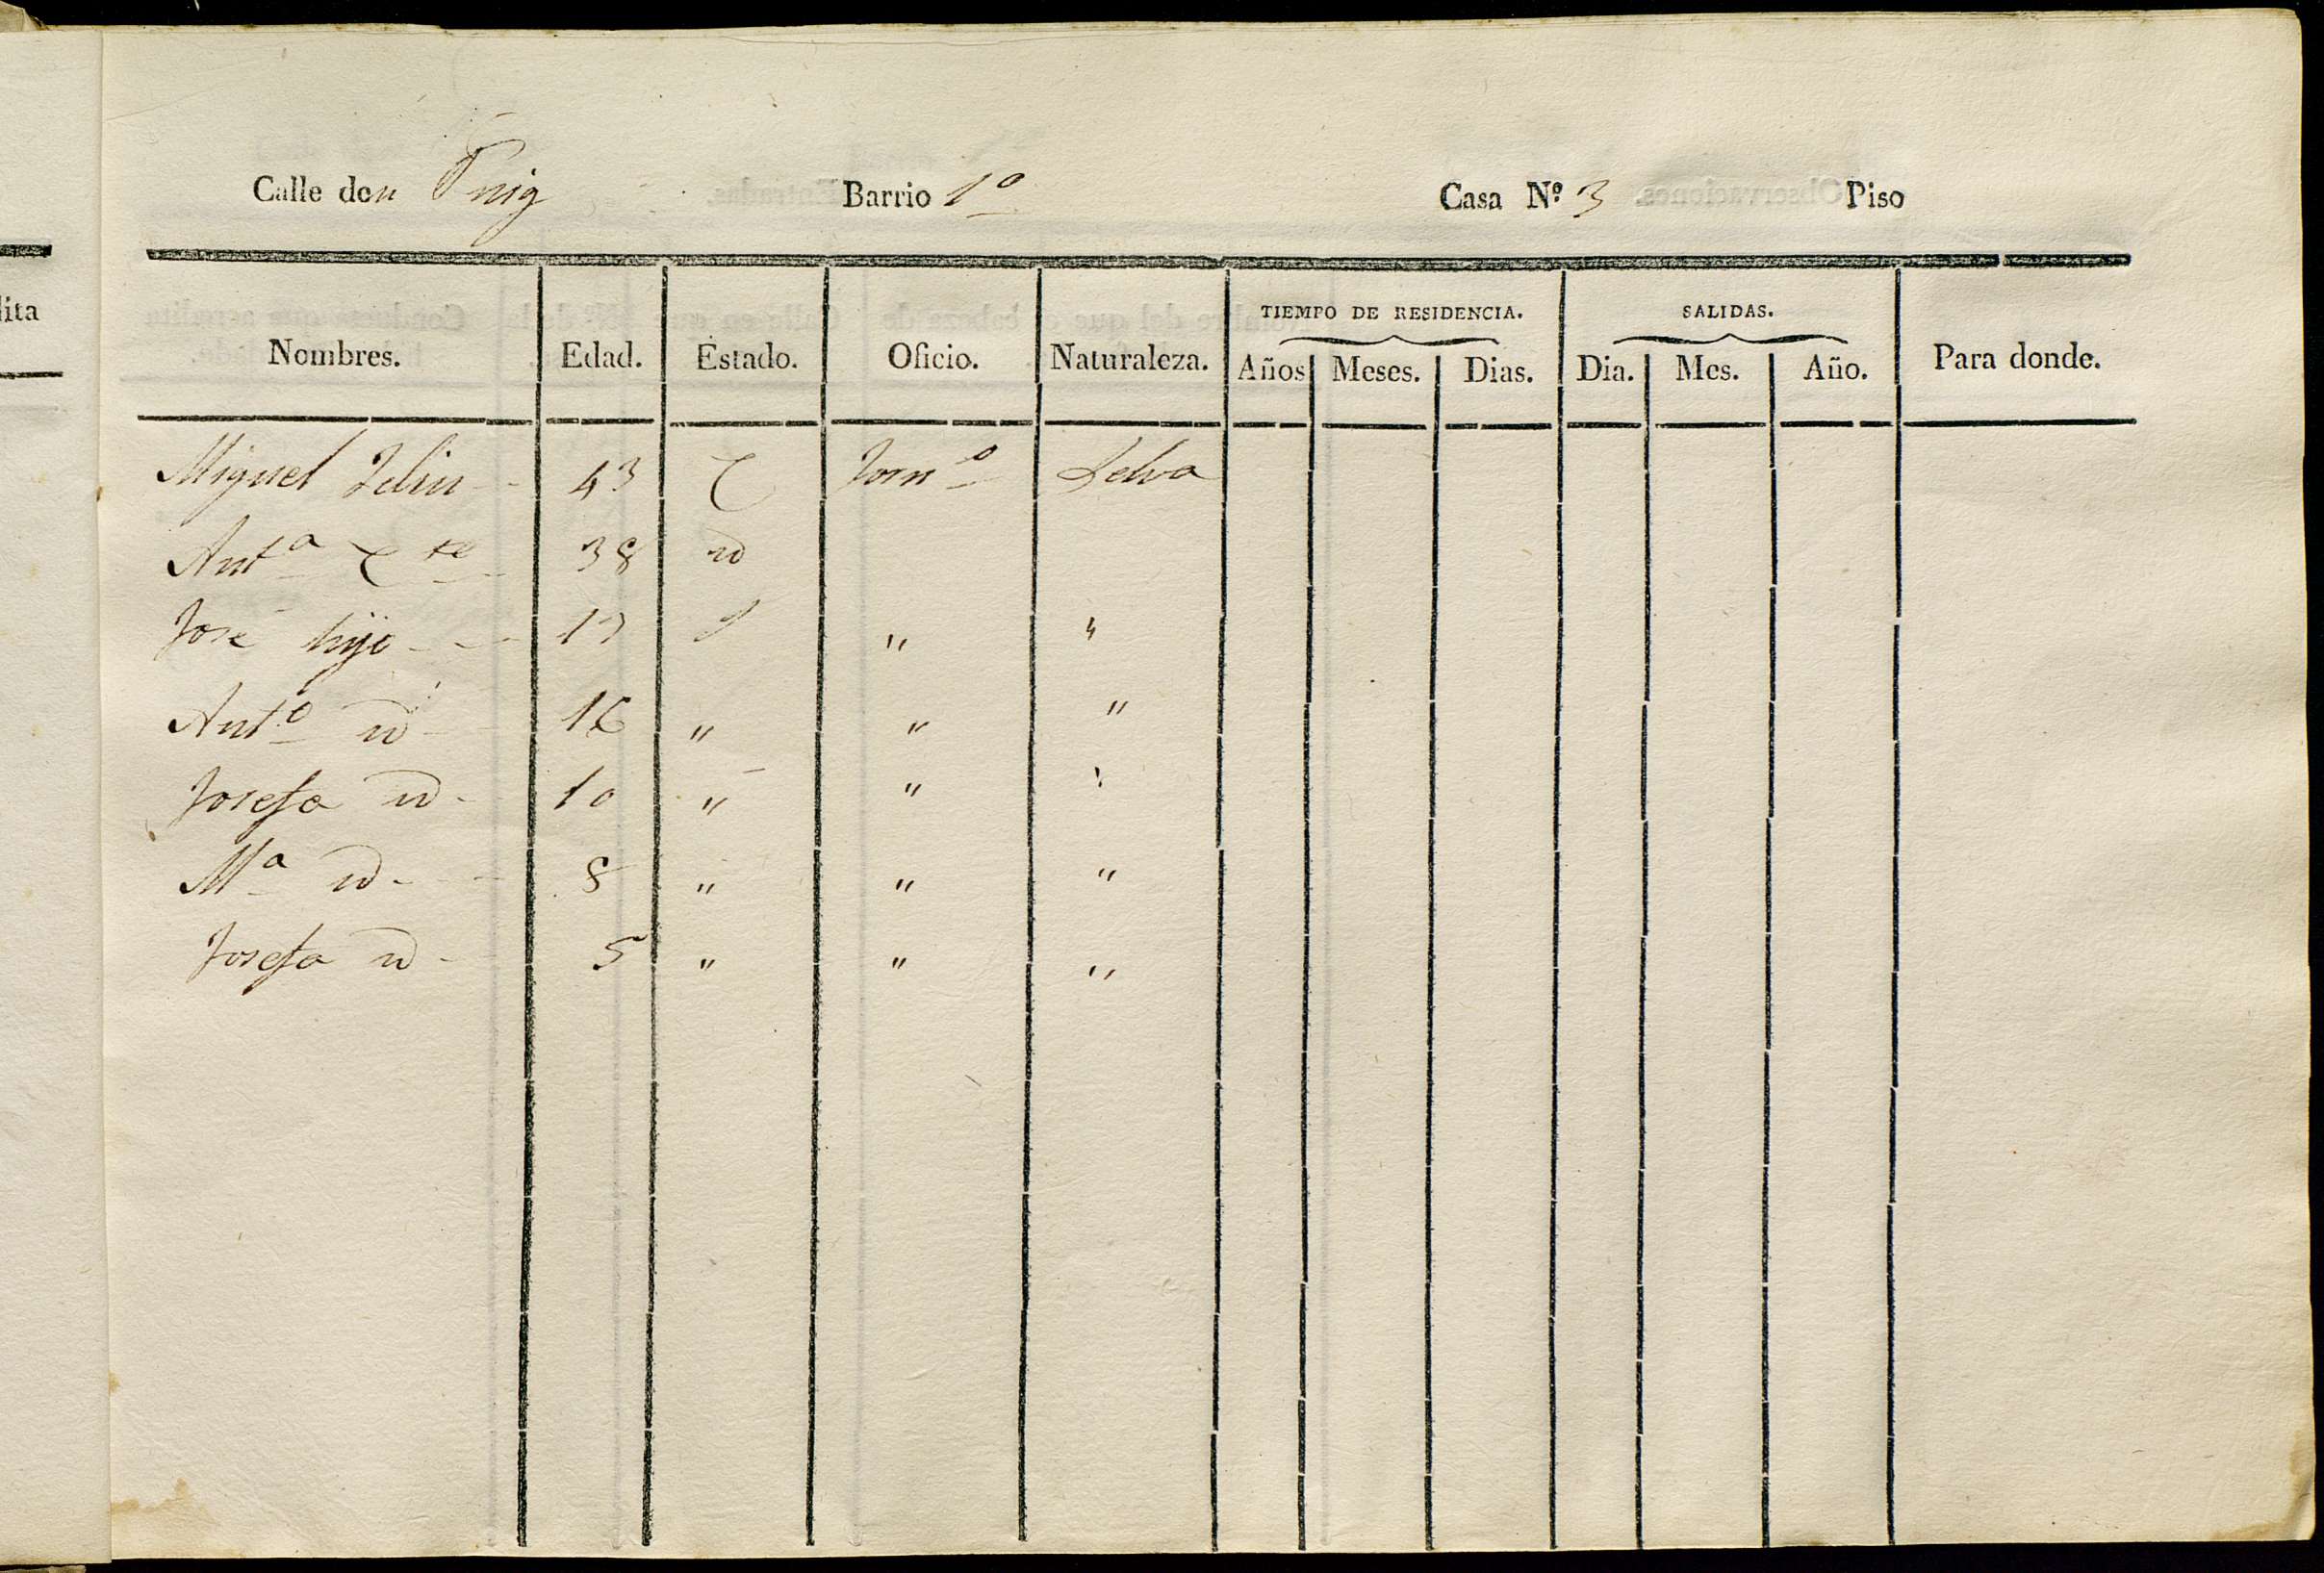 Calle den Puig Barrio 1º Casa Nº 3 Piso
lita
TIEMPO DE RESIDENCIA. SALIDAS.
Nombres. Edad. Estado. Oficio. Naturaleza. Años Meses. Dias. Dia. Mes. Año. Para donde.
Miguel 43 C Jornº Selva
Antª C te 38 id
José hijo - - 17 S " "
Antº id - 16 " " "
Josefa id - 10 " " "
Mª id - - 8 " " "
Josefa id - 5 " " "